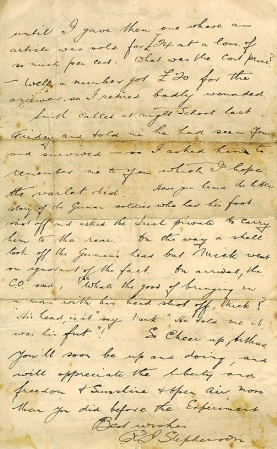 until I gave them one where an
article was sold for £24 at a loss of
so much per cent. What was the cost price?
— Well a number got £20 for the
answer so I retired badly wounded.
Smith called at night School last
Friday and told me he had seen you
and survived — so I asked him to
remember me to you which I hope
the varlet did. Have you heard the little
story of the German soldiers who had his foot
shot off and asked the Irish private to carry
him to the rear. On the way a shell
took off the German's head but Mick went
on ignorant of the fact. On arrival, the
C.O. said, "What's the good of bringing in
a man with his head shot off, Mick?"
"His head, is it?" says Mick. "He told me it
was his fut"! So Cheer up, Arthur
you'll soon be up and doing, and
will appreciate the liberty and
freedom & Sunshine & open air more
than you did before the Experiment
Best wishes
Stephenson